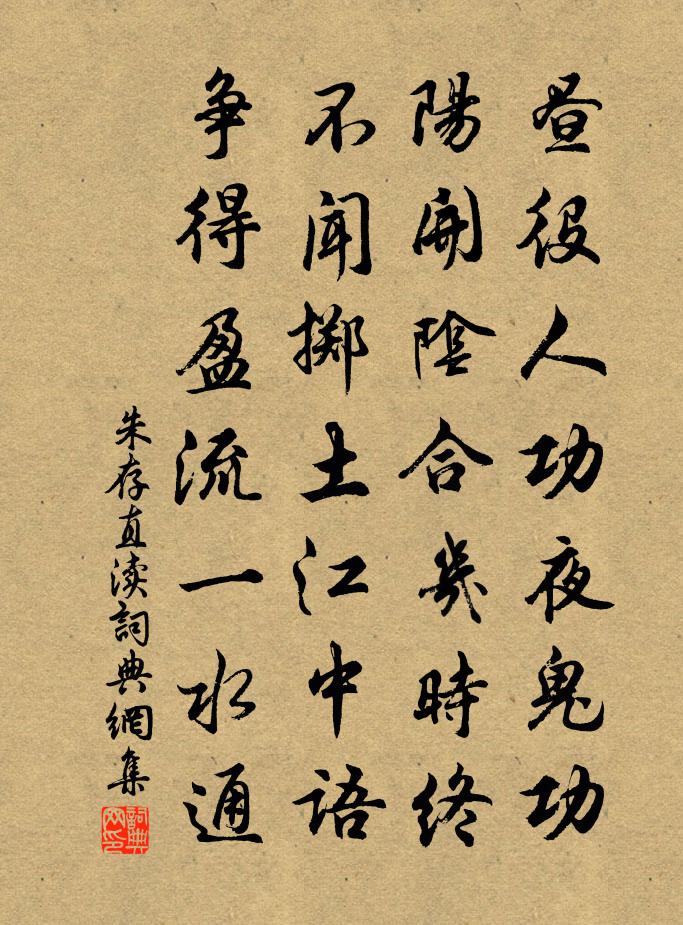 昼役人功夜鬼功
陽開陰合幾時終
不闻掷土江中語
争得盈流一水通
朱存直渎詞典網集
詞典网印